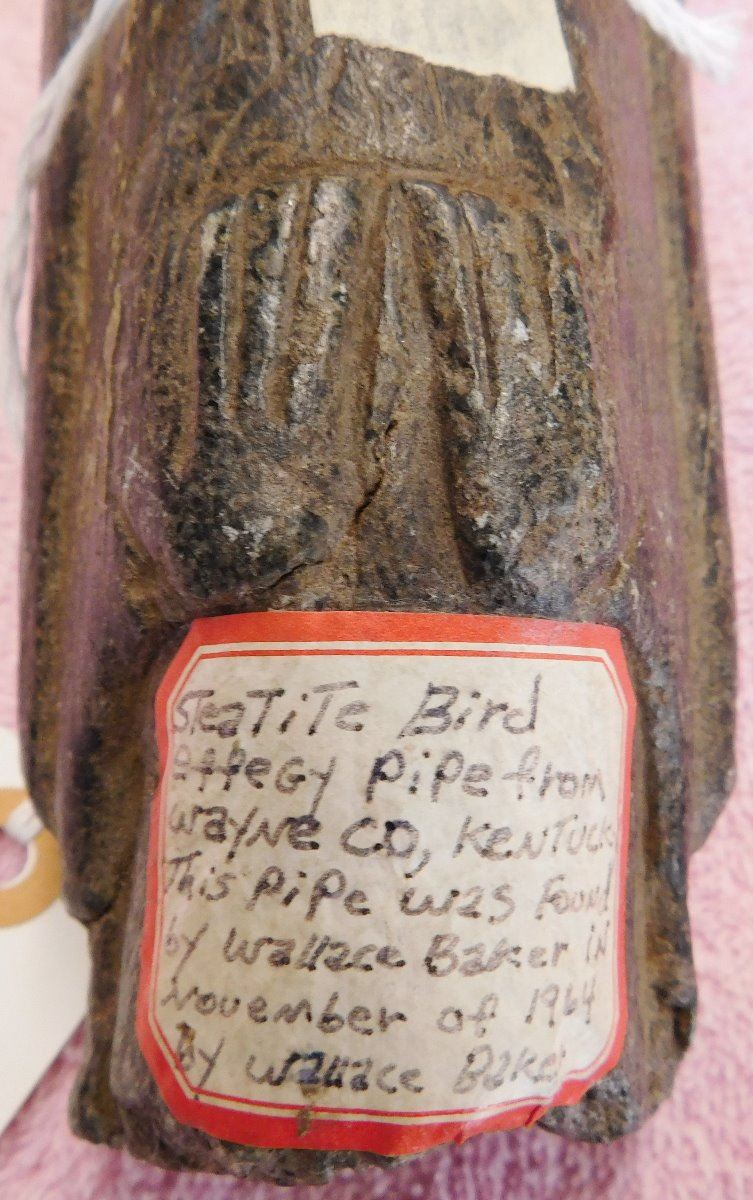 SteaTiTe Bird
effeGy PiPe from
WayNe CO, KeNTuck
This PiPe was Found
by Wallace Baker iN
November of 1964
By Wallace Baker